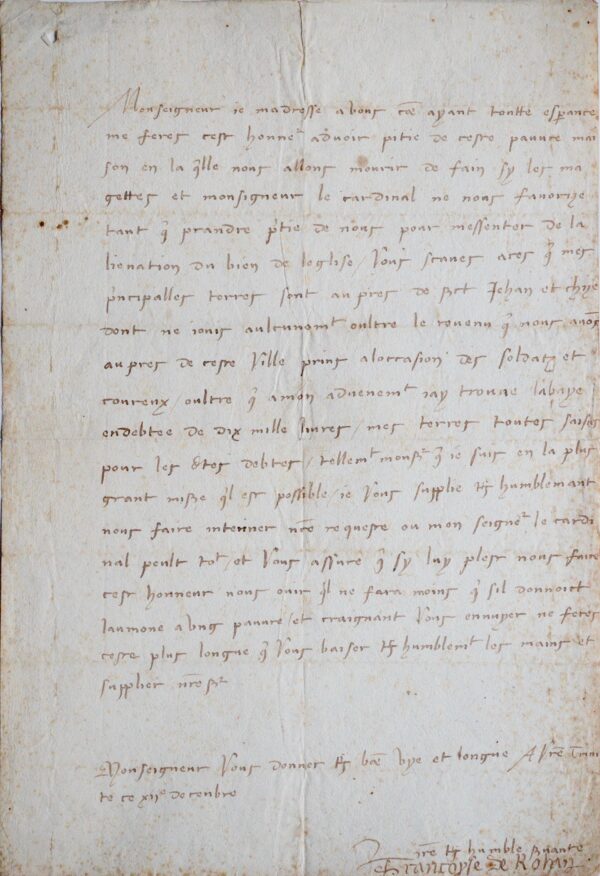 Monseigneur ie madresse a vous cõe ayant toutte esperance
me feres cest honneur advoir pitie de ceste pauvre mai
son en la qlle nous allons mourir de fain sy les ma
gettes et monsigneur le cardinal ne nous favorize
tant q prandre ptie de nous pour messenter de la
lienation du bien de leglise / Vous scaves aces q mes
prncipalles terres sont aupres de Jehan et
dont ne iouis aulcunemt oultre le revenu q nous avõs
aupres de ceste Ville prins aloccasion des soldatz et
coureux / oultre q a mon advenemt iay trouvae labaye
endebtee de dix mille livres / mes terres toutes saisies
pour les dtes debtes / tellemt monsr q ie suis en la plus
grant mizre ql est possible / ie Vous supplie ts humblemant
nous faire interiner nre requeste ou mon seignr le cardi
nal peult tot / et Vous assure q sy luy plest nous faire
cest honneur nous ouir ql ne fara moins q sil donnoict
laumone a ung pauvre / et craignant Vous ennuyer ne feres
ceste plus longue q Vous baiser ts humblemt les mains et
supplier nre sr
Monseigneur Vous donner ts bõe vye et longue A vre Trini
te ce xiie decenbre
vre ts humble svante
Francoyse de Rohan